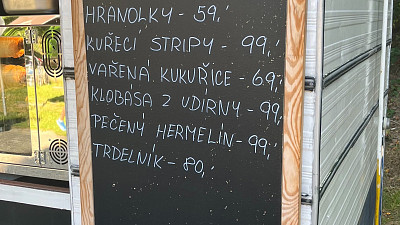 HRANOLKY - 59,'
KUŘECÍ STRIPY - 99,'
VAŘENÁ KUKUŘICE - 69,'
KLOBÁSA Z UDÍRNY - 99,'
PEČENÝ HERMELÍN - 99,'
TRDELNÍK - 80,'